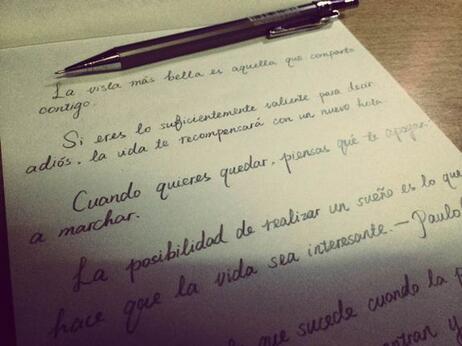 La vista más bella es aquella que comparto
contigo.
Si eres lo suficientemente valiente para decir
adiós, la vida te recompensará con un nuevo hola
Cuando quieres quedar, piensas qué te apagan
a marchar.
La posibilidad de realizar un sueño es lo que
hace que la vida sea interesante.—Paulo
que sucede cuando la